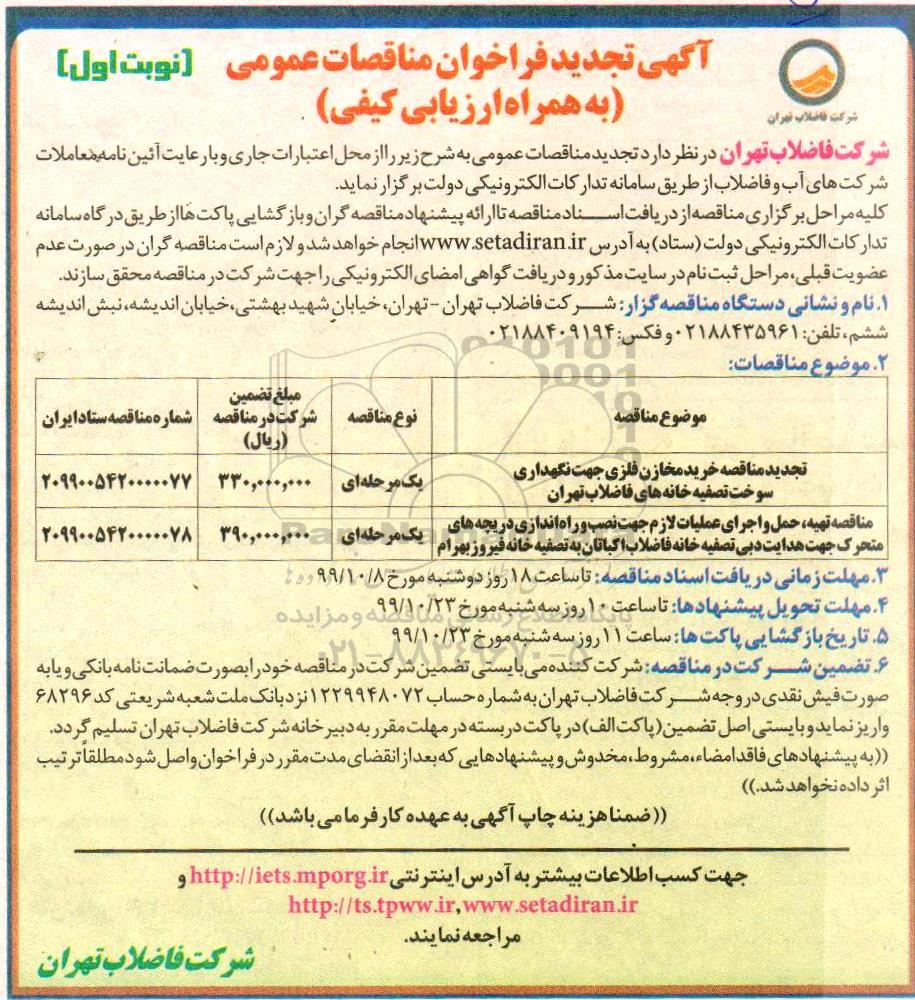 آگهی تجدید فراخوان مناقصات عمومی
(به همراه ارزیابی کیفی)
[نوبت اول]
شرکت فاضلاب تهران
شرکت فاضلاب تهران در نظر دارد تجدید مناقصات عمومی به شرح زیر را از محل اعتبارات جاری و با رعایت آئین نامه معاملات
شرکت های آب و فاضلاب از طریق سامانه تدارکات الکترونیکی دولت برگزار نماید.
کلیه مراحل برگزاری مناقصه از دریافت اسناد مناقصه تا ارائه پیشنهاد مناقصه گران و بازگشایی پاکت ها از طریق درگاه سامانه
تدارکات الکترونیکی دولت (ستاد) به آدرس www.setadiran.ir انجام خواهد شد و لازم است مناقصه گران در صورت عدم
عضویت قبلی، مراحل ثبت نام در سایت مذکور و دریافت گواهی امضای الکترونیکی را جهت شرکت در مناقصه محقق سازند.
۱. نام و نشانی دستگاه مناقصه گزار: شرکت فاضلاب تهران - تهران، خیابان شهید بهشتی، خیابان اندیشه، نبش اندیشه
ششم، تلفن: ۰۲۱۸۸۴۳۵۹۶۱ و فکس: ۰۲۱۸۸۴۰۹۱۹۴
۲. موضوع مناقصات:
موضوع مناقصه
نوع مناقصه
مبلغ تضمین
شرکت در مناقصه
(ریال)
شماره مناقصه ستاد ایران
تجدید مناقصه خرید مخازن فلزی جهت نگهداری
سوخت تصفیه خانه های فاضلاب تهران
یک مرحله ای
۳۳۰,۰۰۰,۰۰۰
۲۰۹۹۰۰۵۴۲۰۰۰۰۰۷۷
مناقصه تهیه، حمل و اجرای عملیات لازم جهت نصب و راه اندازی دریچه های
متحرک جهت هدایت دبی تصفیه خانه فاضلاب اکباتان به تصفیه خانه فیروز بهرام
یک مرحله ای
۳۹۰,۰۰۰,۰۰۰
۲۰۹۹۰۰۵۴۲۰۰۰۰۰۷۸
۳. مهلت زمانی دریافت اسناد مناقصه: تا ساعت ۱۸ روز دوشنبه مورخ ۹۹/۱۰/۸
۴. مهلت تحویل پیشنهادها: تا ساعت ۱۰ روز سه شنبه مورخ ۹۹/۱۰/۲۳
۵. تاریخ بازگشایی پاکت ها: ساعت ۱۱ روز سه شنبه مورخ ۹۹/۱۰/۲۳
۶. تضمین شرکت در مناقصه: شرکت کننده می بایستی تضمین شرکت در مناقصه خود را بصورت ضمانت نامه بانکی و یا به
صورت فیش نقدی در وجه شرکت فاضلاب تهران به شماره حساب ۱۲۲۹۹۴۸۰۷۲ نزد بانک ملت شعبه شریعتی کد ۶۸۲۹۶
واریز نماید و بایستی اصل تضمین (پاکت الف) در پاکت در بسته در مهلت مقرر به دبیرخانه شرکت فاضلاب تهران تسلیم گردد.
((به پیشنهادهای فاقد امضاء، مشروط، مخدوش و پیشنهادهایی که بعد از انقضای مدت مقرر در فراخوان واصل شود مطلقاً ترتیب
اثر داده نخواهد شد.))
((ضمنا هزینه چاپ آگهی به عهده کارفرما می باشد))
جهت کسب اطلاعات بیشتر به آدرس اینترنتی http://iets.mporg.ir و
http://ts.tpww.ir, www.setadiran.ir
مراجعه نمایند.
شرکت فاضلاب تهران
پایگاه اطلاع رسانی مناقصه و مزایده
۰۲۱-۸۸۳۴۹۶۷۰-۵